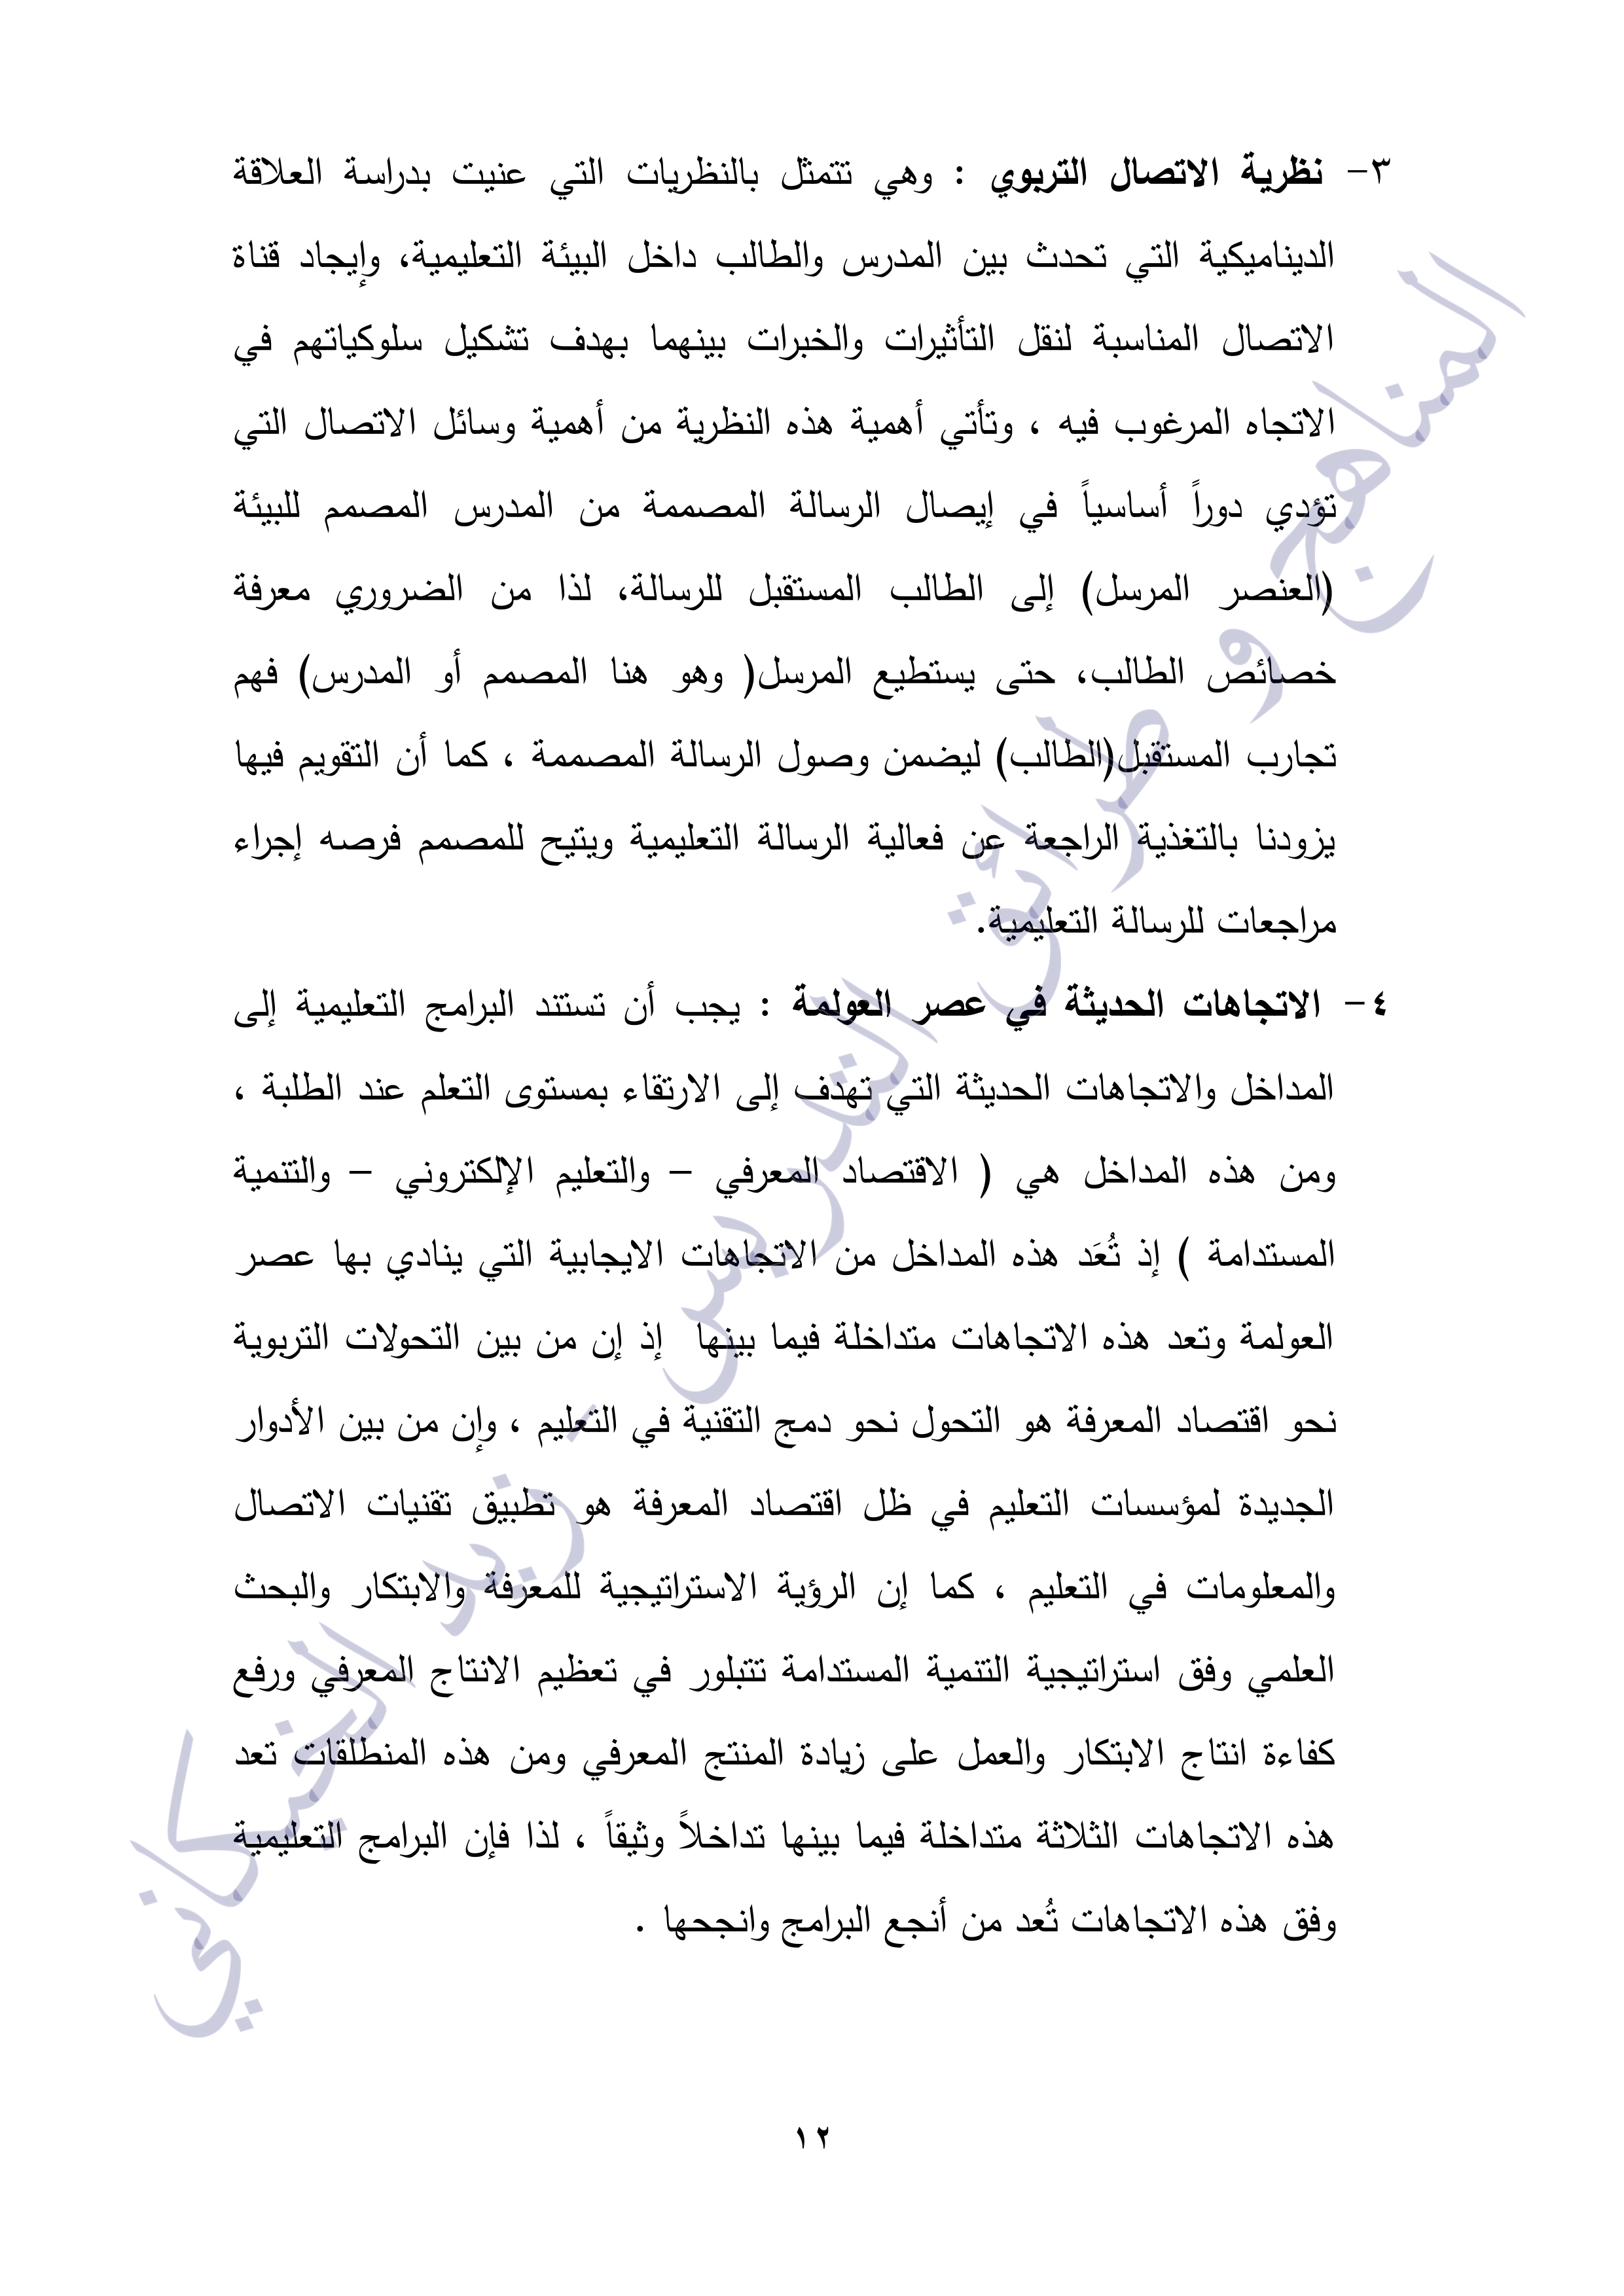 ٣- نظرية الاتصال التربوي : وهي تتمثل بالنظريات التي عنيت بدراسة العلاقة
الديناميكية التي تحدث بين المدرس والطالب داخل البيئة التعليمية، وإيجاد قناة
الاتصال المناسبة لنقل التأثيرات والخبرات بينهما بهدف تشكيل سلوكياتهم في
الاتجاه المرغوب فيه ، وتأتي أهمية هذه النظرية من أهمية وسائل الاتصال التي
تؤدي دوراً أساسياً في إيصال الرسالة المصممة من المدرس المصمم للبيئة
(العنصر المرسل) إلى الطالب المستقبل للرسالة، لذا من الضروري معرفة
خصائص الطالب، حتى يستطيع المرسل( وهو هنا المصمم أو المدرس) فهم
تجارب المستقبل(الطالب) ليضمن وصول الرسالة المصممة ، كما أن التقويم فيها
يزودنا بالتغذية الراجعة عن فعالية الرسالة التعليمية ويتيح للمصمم فرصه إجراء
مراجعات للرسالة التعليمية.
٤- الاتجاهات الحديثة في عصر العولمة : يجب أن تستند البرامج التعليمية إلى
المداخل والاتجاهات الحديثة التي تهدف إلى الارتقاء بمستوى التعلم عند الطلبة ،
ومن هذه المداخل هي ( الاقتصاد المعرفي – والتعليم الإلكتروني – والتنمية
المستدامة ) إذ تُعَد هذه المداخل من الاتجاهات الايجابية التي ينادي بها عصر
العولمة وتعد هذه الاتجاهات متداخلة فيما بينها إذ إن من بين التحولات التربوية
نحو اقتصاد المعرفة هو التحول نحو دمج التقنية في التعليم ، وإن من بين الأدوار
الجديدة لمؤسسات التعليم في ظل اقتصاد المعرفة هو تطبيق تقنيات الاتصال
والمعلومات في التعليم ، كما إن الرؤية الاستراتيجية للمعرفة والابتكار والبحث
العلمي وفق استراتيجية التنمية المستدامة تتبلور في تعظيم الانتاج المعرفي ورفع
كفاءة انتاج الابتكار والعمل على زيادة المنتج المعرفي ومن هذه المنطلقات تعد
هذه الاتجاهات الثلاثة متداخلة فيما بينها تداخلاً وثيقاً ، لذا فإن البرامج التعليمية
وفق هذه الاتجاهات تُعد من أنجع البرامج وانجحها .
المناهج و طرائق التدريس - زيد الخيكاني
١٢